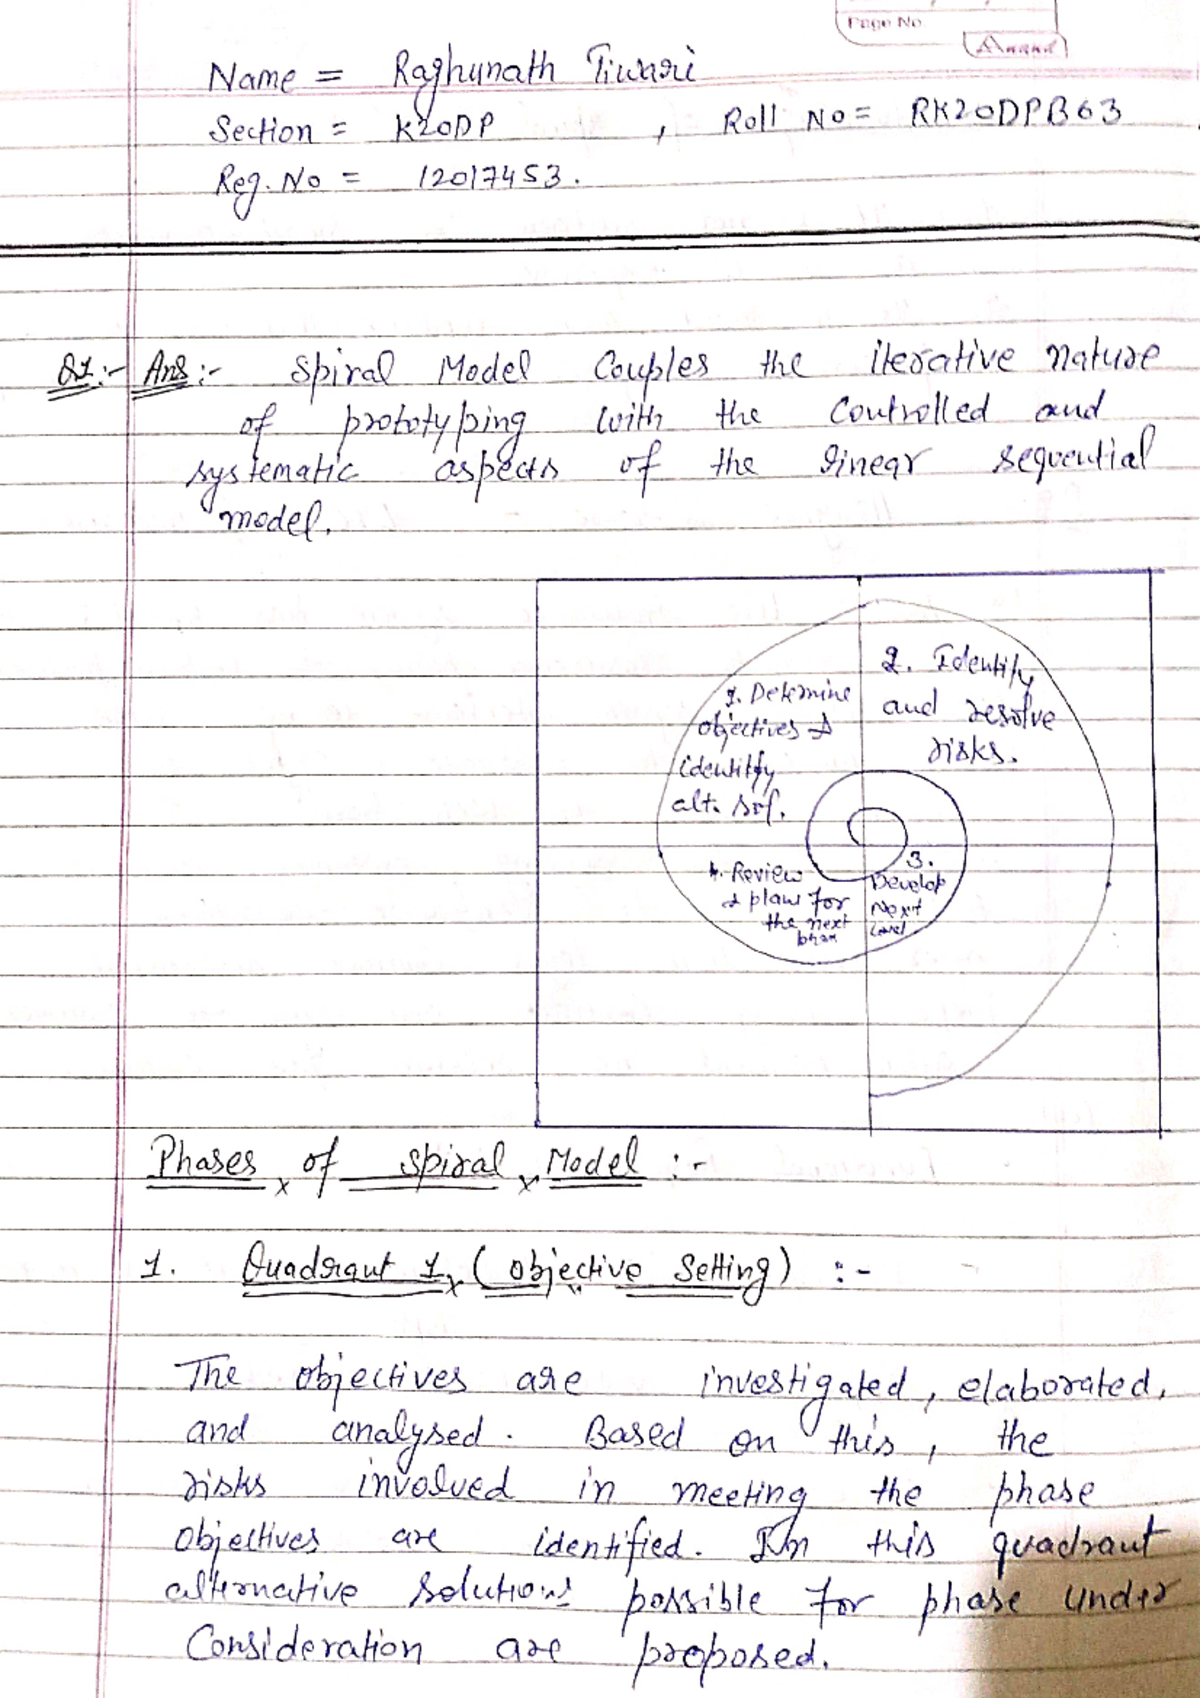 Page No
Anand
Name = Raghunath Tiwari
Section = K20DP , Roll No = RK20DPB63
Reg. No = 12017453.
Q1:- Ans:- Spiral Model Couples the iterative nature
of prototyping with the Controlled and
systematic aspects of the linear sequential
model.
1. Determine
objectives &
identitfy
alt. sol.
2. Identify
and resolve
risks.
3.
Develop
Next
Level
4. Review
& plan for
the next
phase
Phases of spiral Model :-
1. Quadrant 1 (Objective Setting) :-
The objectives are investigated, elaborated,
and analysed. Based on this, the
risks involved in meeting the phase
objectives are identified. In this quadrant
alternative solutions possible for phase under
Consideration are proposed.